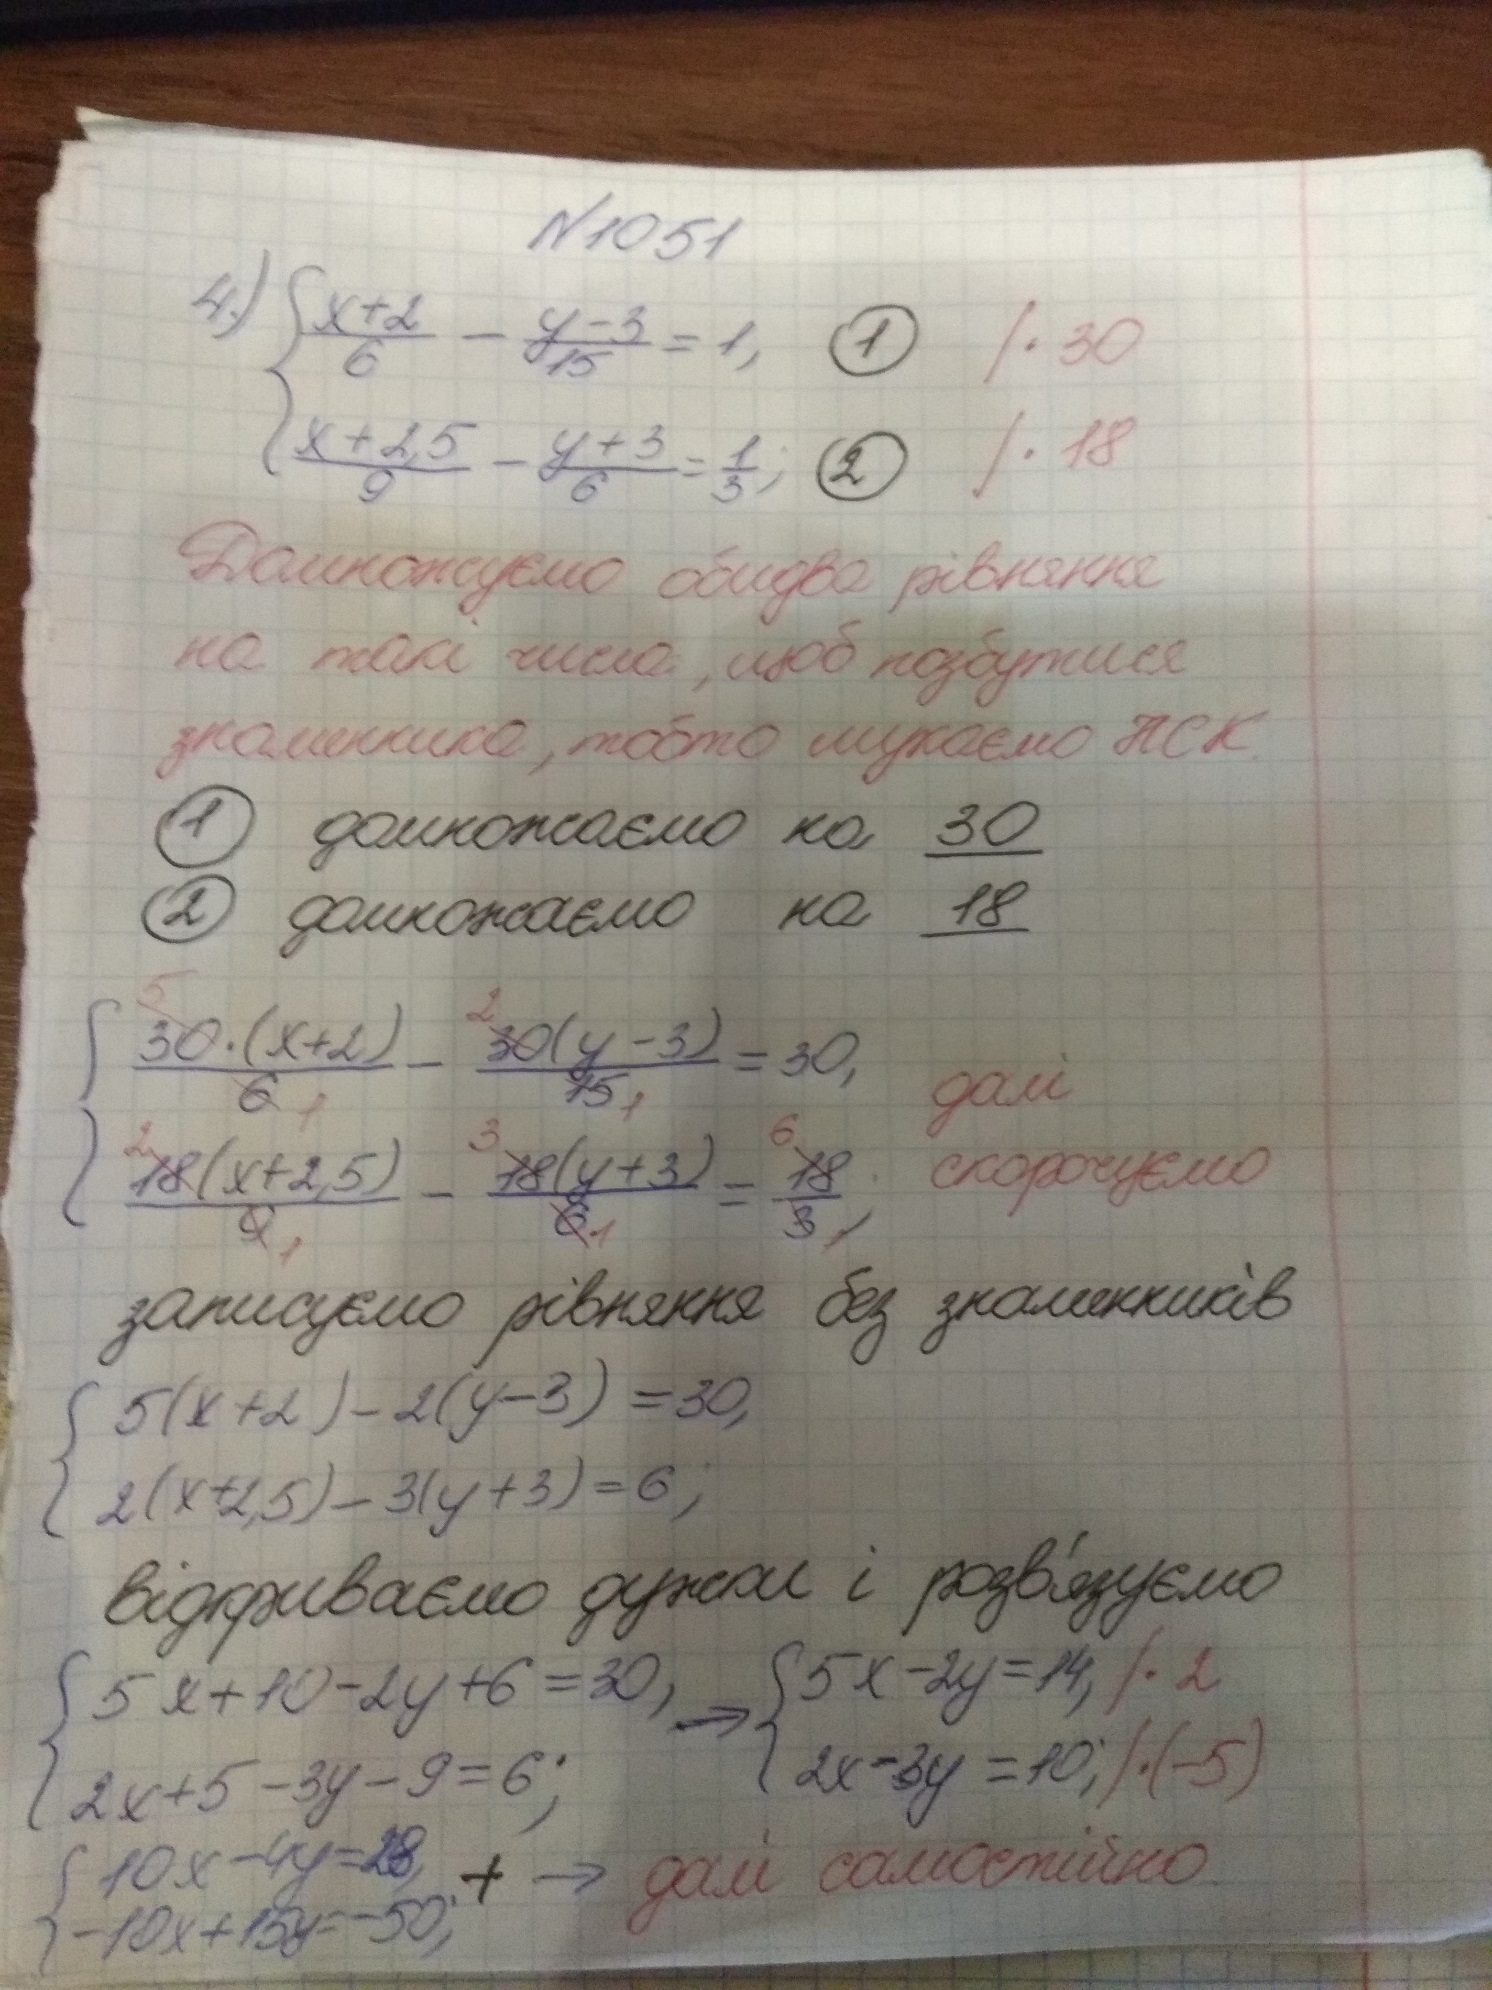 N1051
4.) { (x+2)/6 - (y-3)/15 = 1, ① /·30
(x+2,5)/9 - (y+3)/6 = 1/3; ② /·18
Домножуємо обидва рівняння
на такі числа, щоб позбутися
знаменника, тобто шукаємо НСК.
① домножаємо на 30
② домножаємо на 18
{ 5 30·(x+2)/6 1 - 2 30(y-3)/15 1 = 30, далі
2 18(x+2,5)/9 1 - 3 18(y+3)/6 1 = 6 18/3 1; скорочуємо
записуємо рівняння без знаменників
{ 5(x+2)-2(y-3)=30,
2(x+2,5)-3(y+3)=6;
відкриваємо дужки і розв'язуємо
{ 5x+10-2y+6=30, → { 5x-2y=14, /·2
2x+5-3y-9=6; 2x-3y=10; /·(-5)
{ 10x-4y=28, + → далі самостійно
-10x+15y=-50;